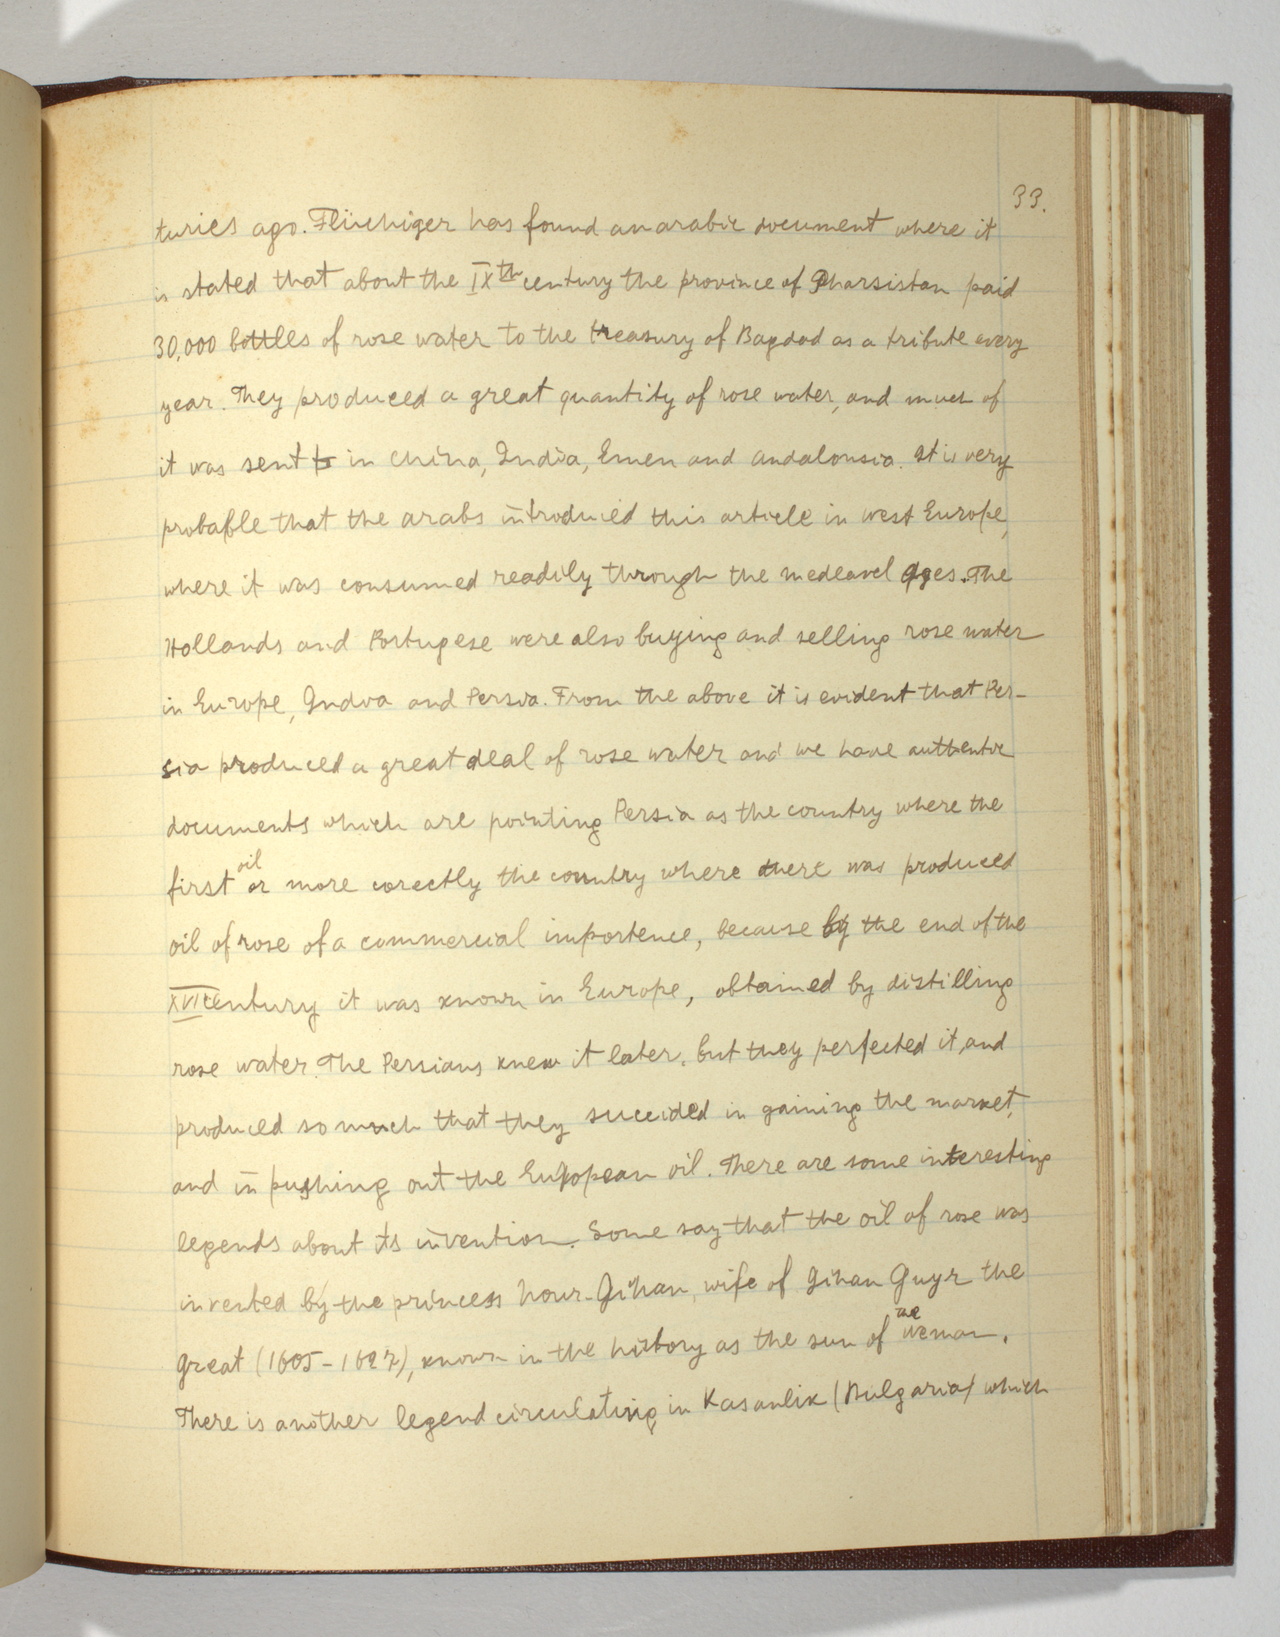 33.
turies ago. Flüchiger has found an arabic document where it
is stated that about the IXth century the province of Pharsistan paid
30,000 bottles of rose water to the treasury of Bagdad as a tribute every
year. They produced a great quantity of rose water, and much of
it was sent to in China, India, Emen and Andalousia. It is very
probable that the arabs introduced this article in west Europe,
where it was consumed readily through the medeavel ages. The
Hollands and Portugese were also buying and selling rose water
in Europe, India and Persia. From the above it is evident that Per-
sia produced a great deal of rose water and we have authentic
documents which are pointing Persia as the country where the
first oil or more corectly the country where there was produced
oil of rose of a commercial importence, because by the end of the
XVI century it was known in Europe, obtained by distilling
rose water. The Persians knew it later, but they perfected it, and
produced so much that they succided in gaining the market,
and in pushing out the European oil. There are some interesting
legends about its invention. Some say that the oil of rose was
invented by the princess Nour-Jihan, wife of Jihan Guyr the
great (1605-1627), known in the history as the sun of the woman.
There is another legend circulating in Kasanlik (Bulgaria) which